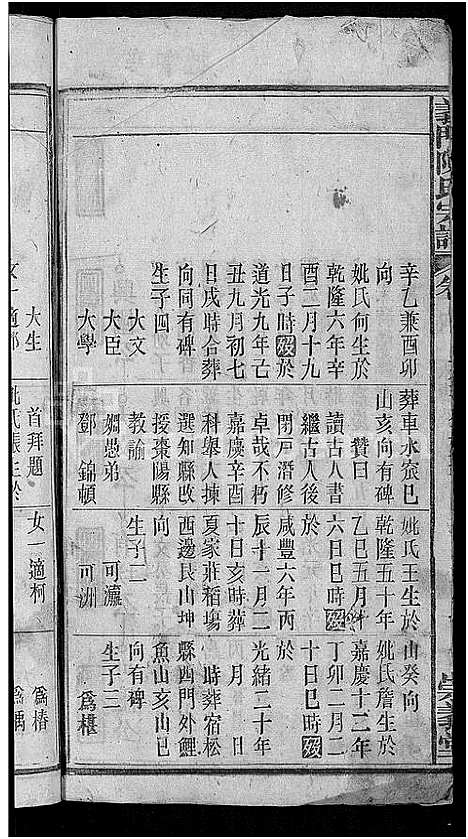 義門陳氏宗譜
卷
崇義堂
辛乙兼酉卯
向
姚氏何生於
乾隆六年辛
酉二月十九
日子時歿於
道光九年己
丑九月初七
日戌時合葬
向同有碑
生子四
大文
大臣
大學
大生
女一適鄧
葬車水㝗巳
山亥向有碑
贊曰
讀古人書
繼古人後
閉戶潛修
卓哉不朽
嘉慶辛酉
科舉人揀
選知縣改
授棗陽縣
教諭
姻愚弟
鄧錦頓
首拜題
姚氏張生於
姚氏王生於
乾隆五十年
乙巳五月十
六日巳時歿
於
咸豐六年丙
辰十一月二
十日亥時葬
夏家莊稻塲
西邊艮山坤
向
生子二
可瀛
可洲
女一適柯
山癸向
姚氏詹生於
嘉慶十三年
丁卯二月二
十日巳時歿
於
光緒三十年
月 日
時葬宿松
縣西門外鯉
魚山亥山巳
向有碑
生子三
為椹
為椿
為